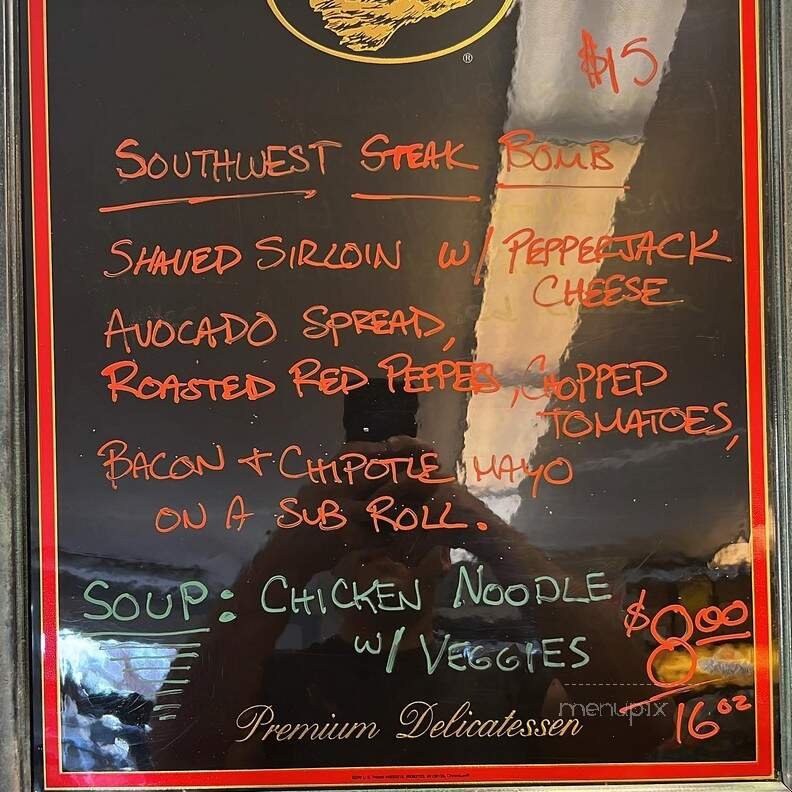 ®
$15
SOUTHWEST STEAK BOMB
SHAVED SIRLOIN W/ PEPPERJACK
CHEESE
AVOCADO SPREAD,
ROASTED RED PEPPERS, CHOPPED
TOMATOES,
BACON + CHIPOTLE MAYO
ON A SUB ROLL.
SOUP: CHICKEN NOODLE
W/ VEGGIES
$8.00
16 oz
menupix
Premium Delicatessen